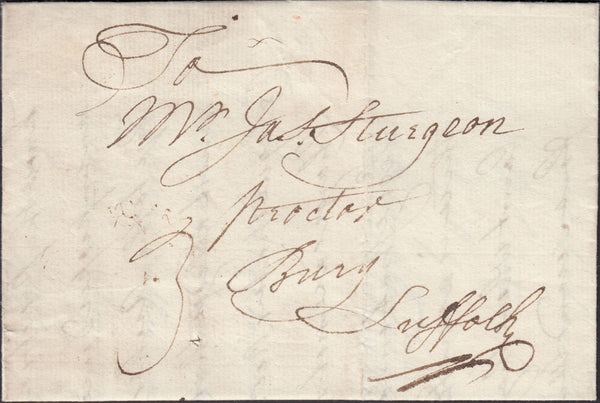 To
Mr. Jas. Sturgeon
Proctor
3
Bury
Suffolk